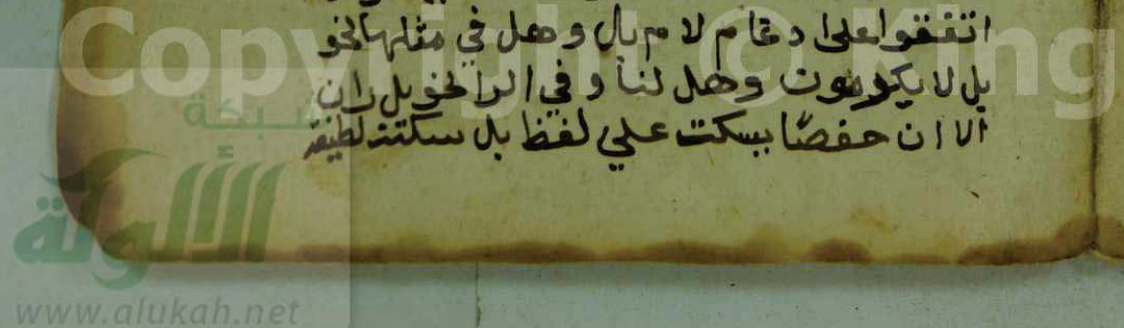 Copyright © King
اتفقوا على ادغام لام بل وهل في مثلها نحو
بل لا يكرمون وهل لنا وفي الرا نحو بل ران
الا ان حفصًا يسكت علي لفظ بل سكتة لطيفة
شبكة
الألوكة
www.alukah.net